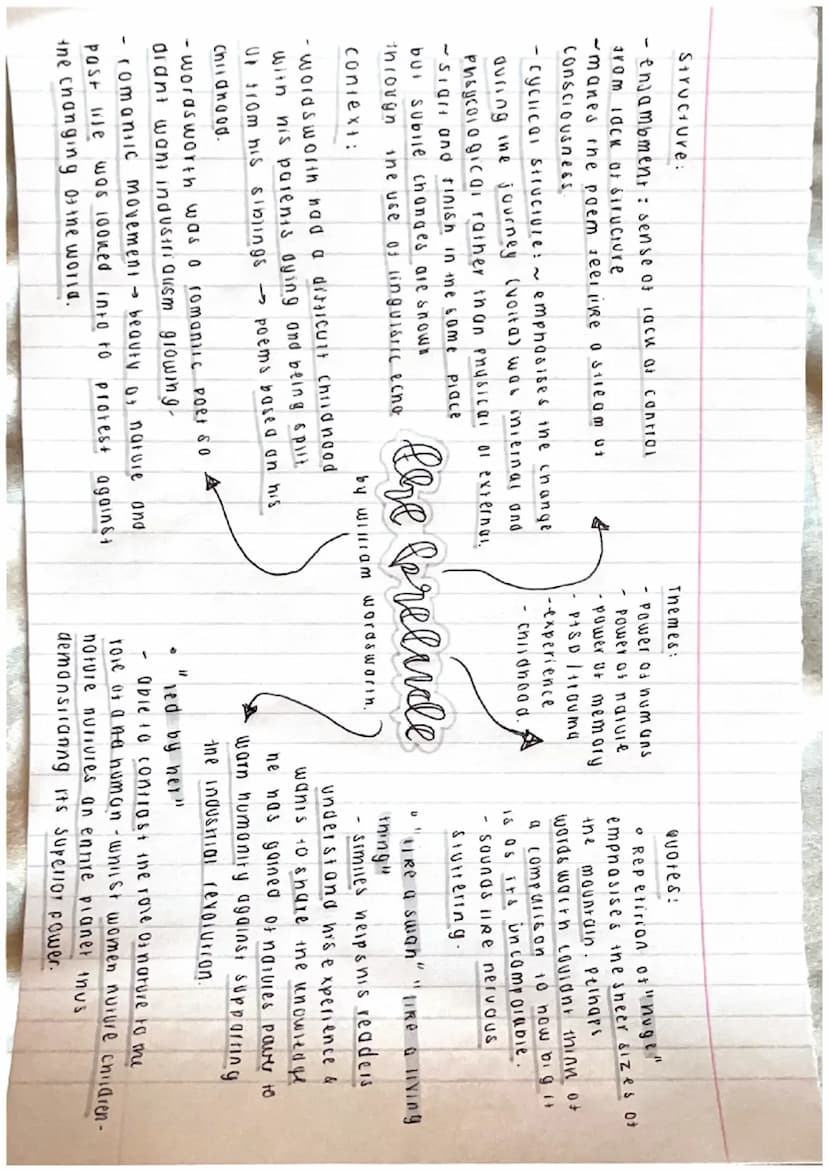 Structure:
- enjambment : sense of lack of control
from lack of structure
~ makes the poem feel like a stream of
consciousness.
- cyclical structure: ~ emphasises the change
during the journey (volta) was internal and
phsycological rather than physical or external.
~ start and finish in the same place
but subtle changes are shown
through the use of linguistic echo
context:
- wordsworth had a difficult childhood
with his parents dying and being split
up from his siblings → poems based on his
childhood.
- wordsworth was a romantic poet so
didnt want industrialism growing.
- romantic movement → beauty of nature and
past life was looked into to protest against
the changing of the world.
The Prelude
by william wordsworth.
Themes:
- Power of humans
- Power of nature
- Power of memory
- PTSD / trauma
- experience
- childhood.
Quotes:
° Repetition of "huge"
emphasises the sheer sizes of
the mountain. Perhaps
wordsworth couldnt think of
a comparison to how big it
is as its uncomparable.
- sounds like nervous
stuttering.
° "like a swan" "like a living
thing"
- similes helps his readers
understand his experience &
wants to share the knowledge
he has gained of natures power to
warn humanity against supporting
the industrial revolution.
° "led by her"
- able to contrast the role of nature to the
role of a human - whilst women nurture children -
nature nurtures an entire planet thus
demonstrating its superior power.